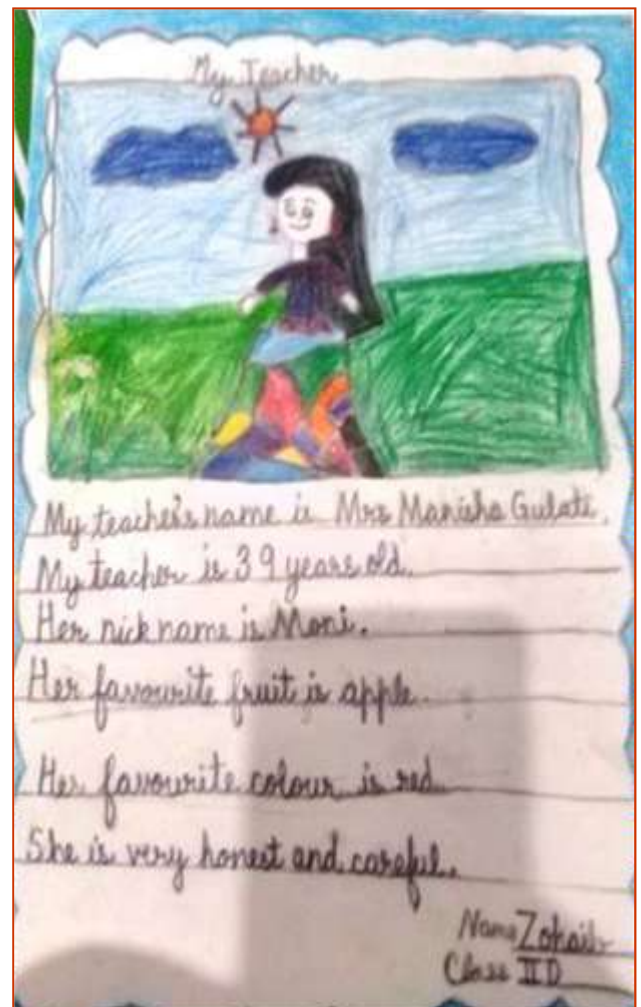 My Teacher
My teacher's name is Mrs Manisha Gulati.
My teacher is 39 years old.
Her nick name is Moni.
Her favourite fruit is apple.
Her favourite colour is red.
She is very honest and careful.
Name
Class II D